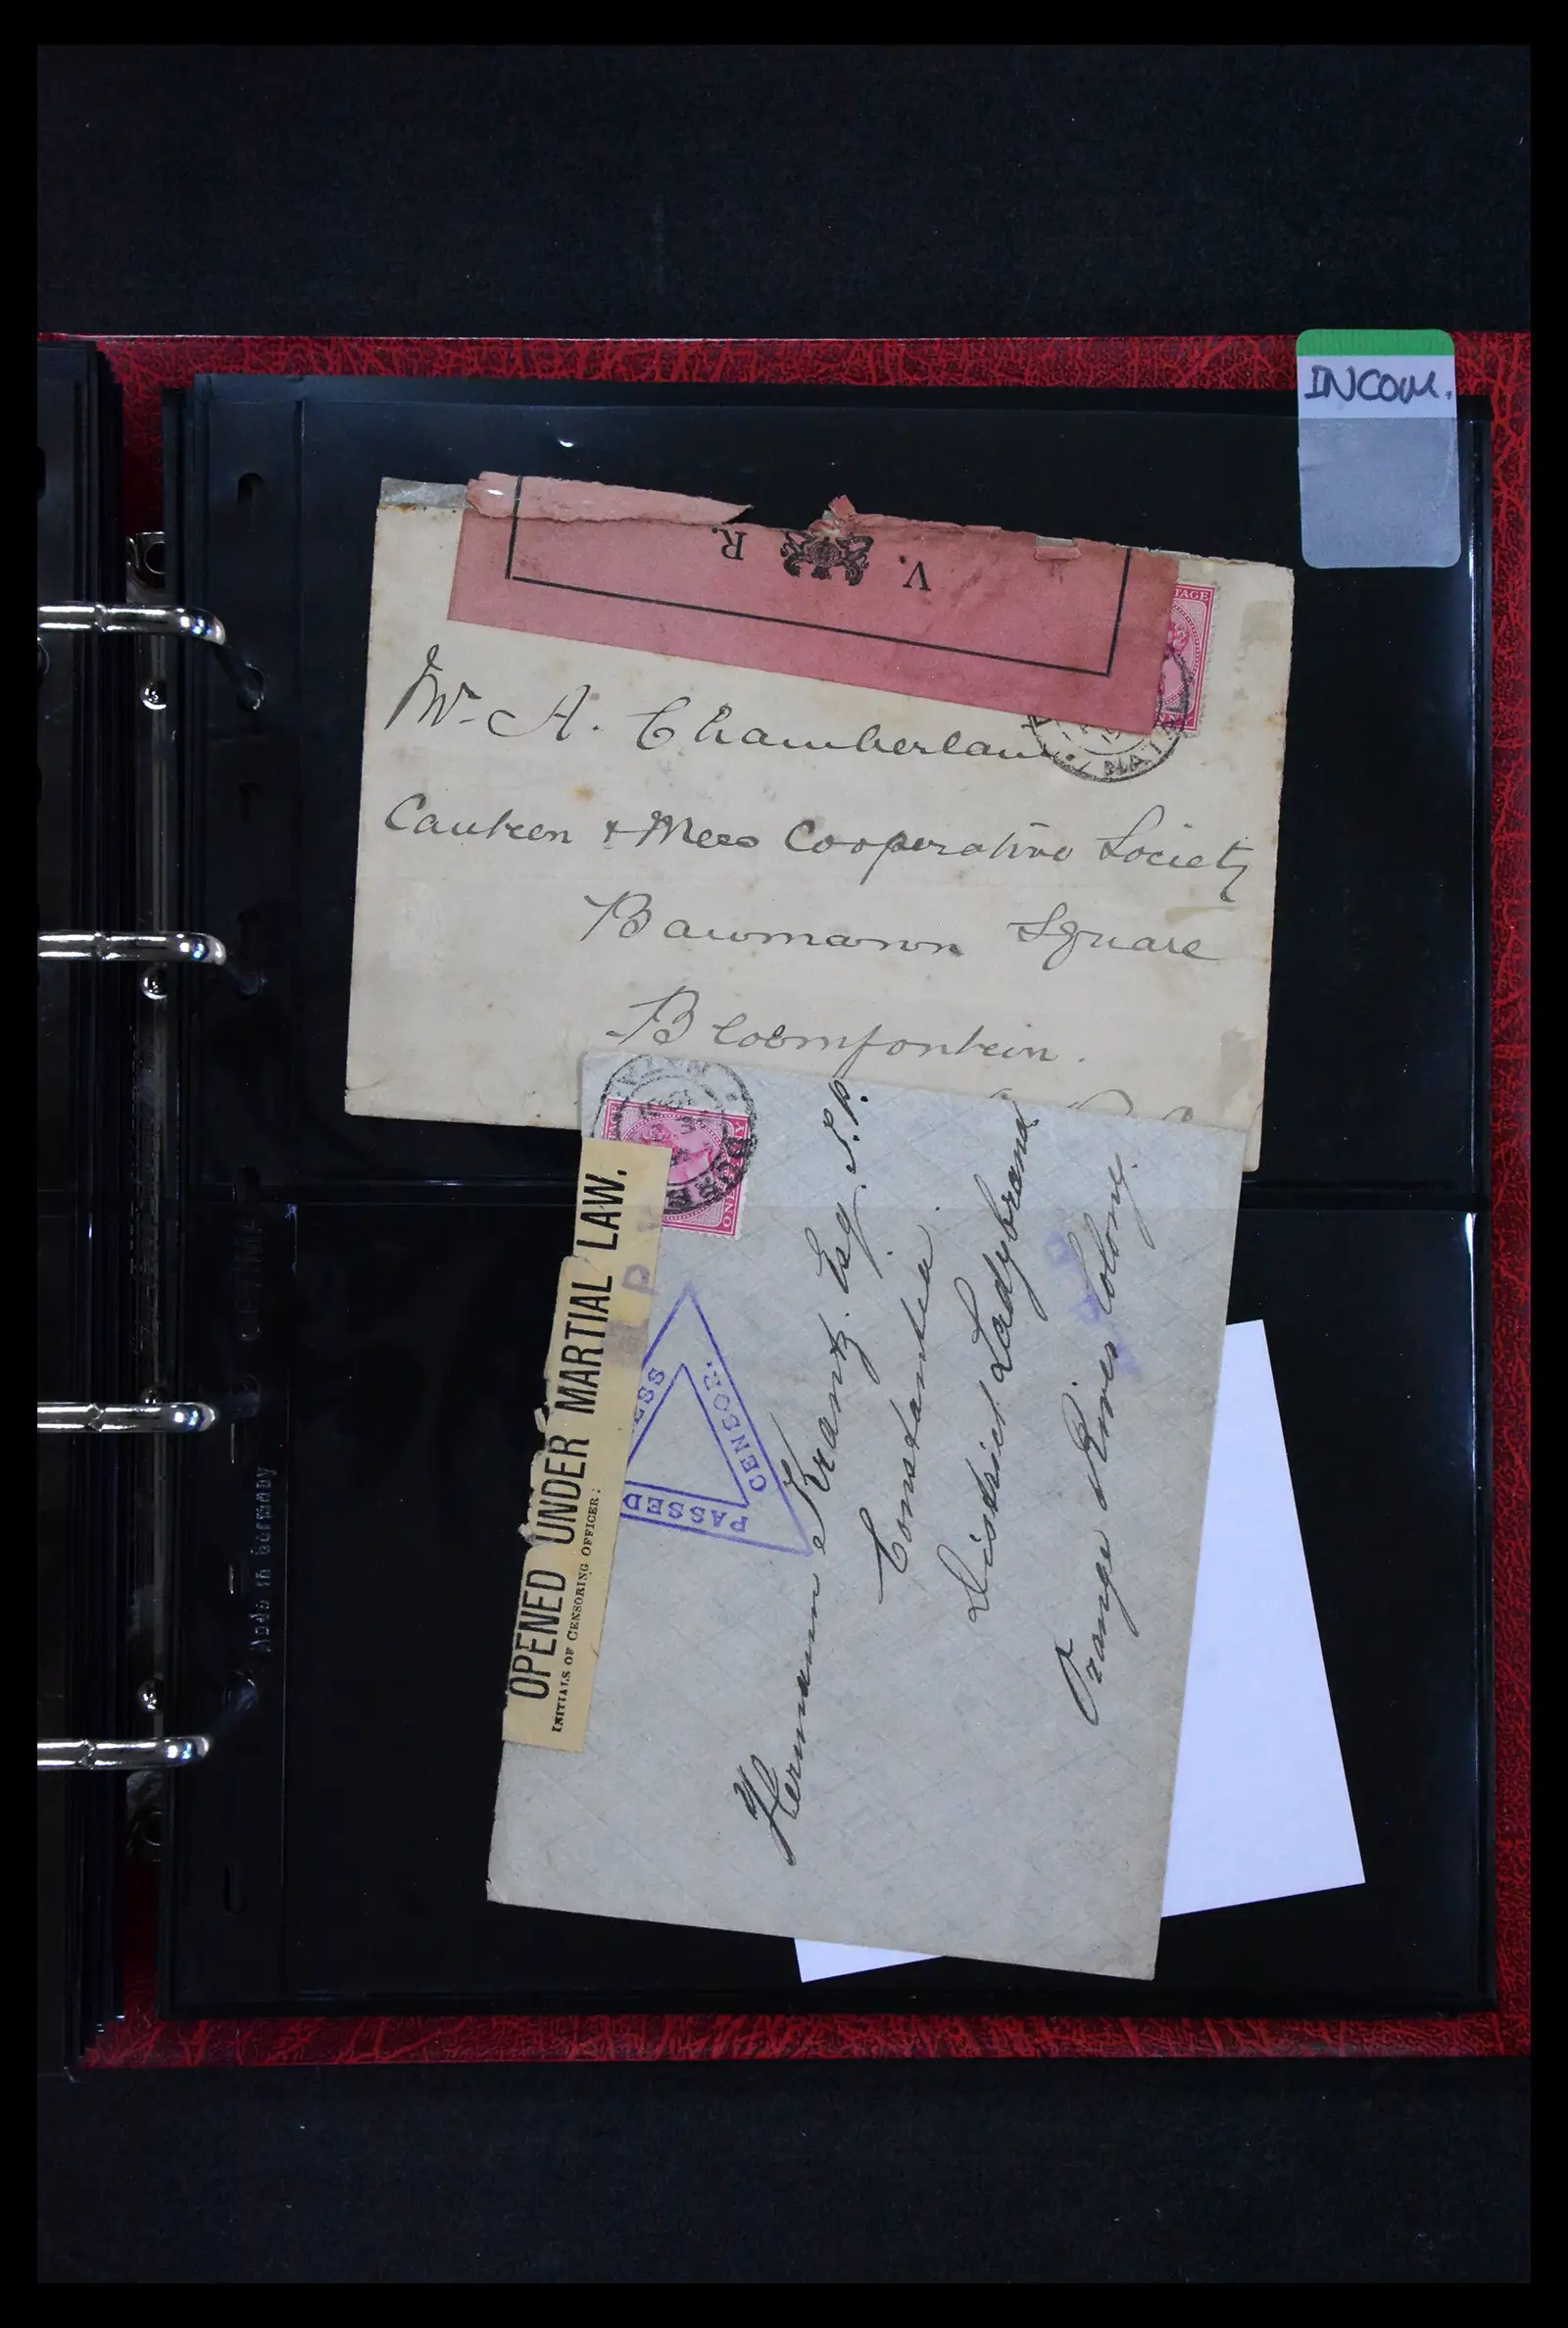 INCOM.
V. R.
TAGE
NATAL
Mr. A. Chamberlain.
Canteen & Mess Cooperative Society
Baumann Square
Bloemfontein.
ONE
OPENED UNDER MARTIAL LAW.
INITIALS OF CENSORING OFFICER:
PASSED
CENSOR.
Hermann Krantz. Esq. J.P.
Constantia.
District Ladybrand
Orange River Colony.
Made in Germany